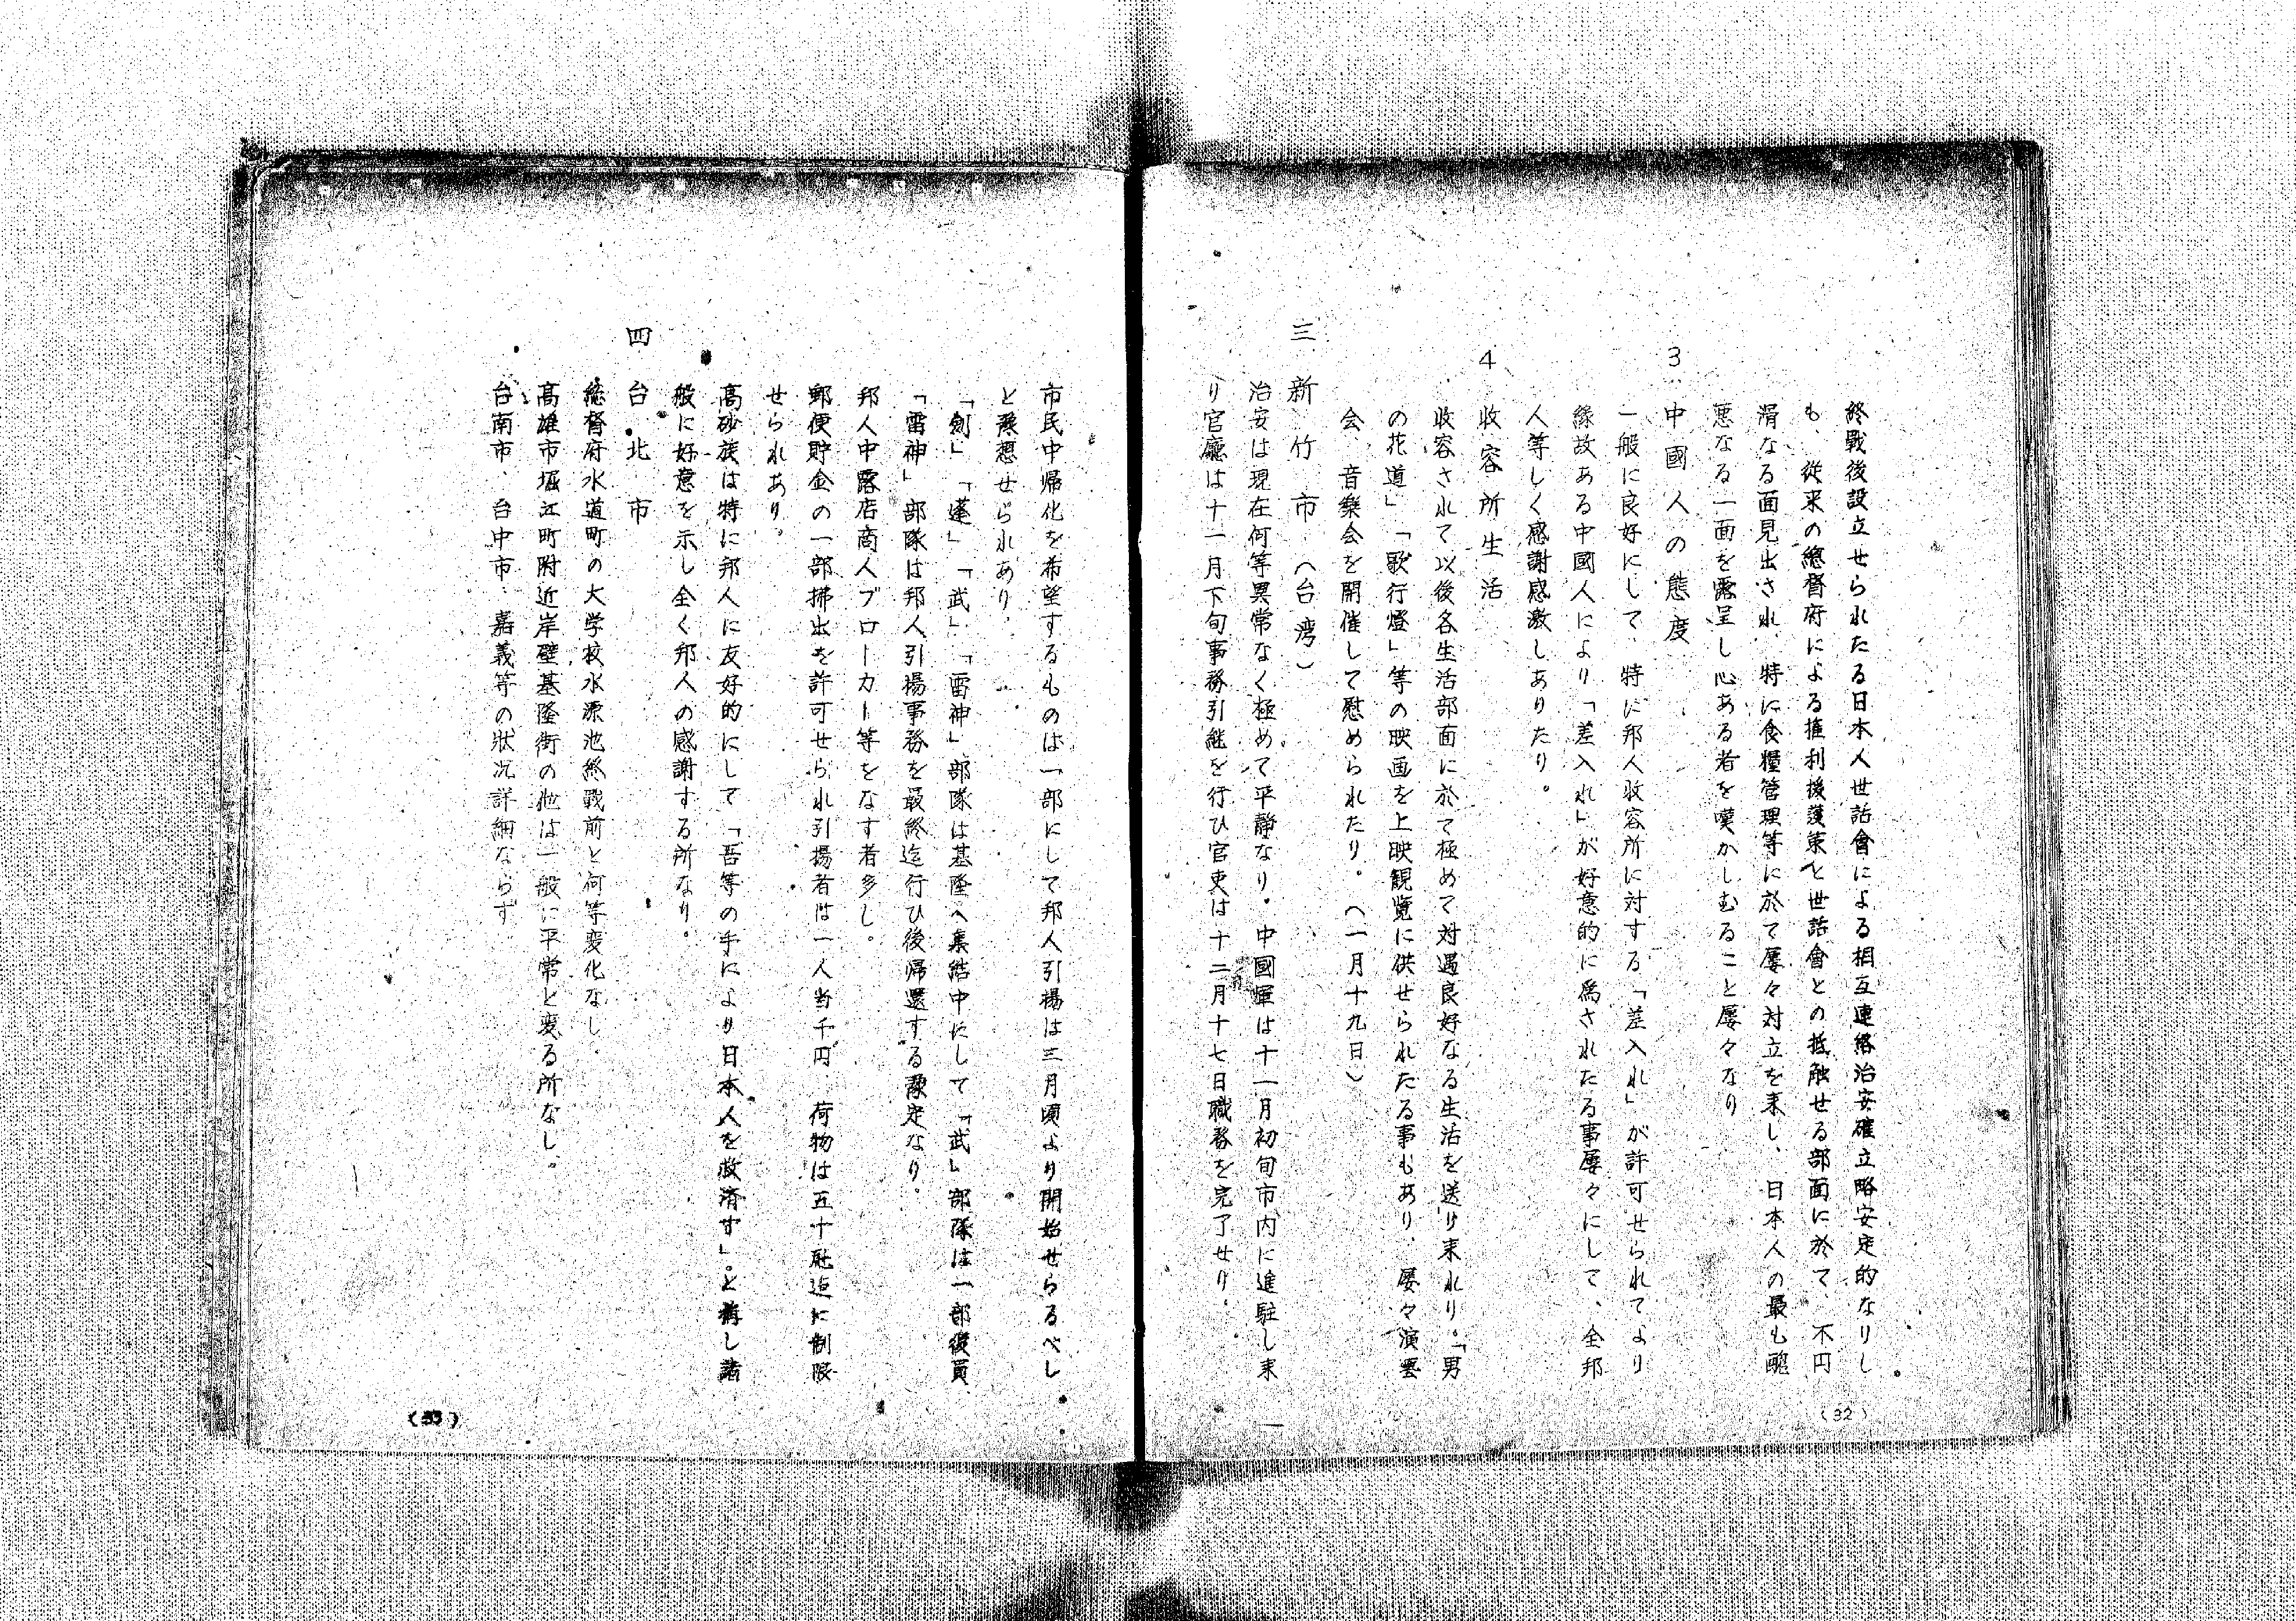 終戰後設立せられたる日本人世話會による相互連絡治安確立略安定的なりし
も、従来の總督府による権利後護策と世話會との抵触せる部面に於て、不円
滑なる面見出され、特に食糧管理等に於て屡々対立を来し、日本人の最も醜
悪なる一面を露呈し心ある者を嘆かしむること屡々なり
3 中國人の態度
一般に良好にして、特に邦人收容所に対する「差入れ」が許可せられてより
縁故ある中國人により「差入れ」が好意的に為されたる事屡々にして、全邦
人等しく感謝感激しありたり。
4 收容所生活
收容されて以後各生活部面に於て極めて対遇良好なる生活を送り来れり。「男
の花道」「歌行燈」等の映画を上映観覧に供せられたる事もあり、屡々演藝
会、音樂会を開催して慰められたり。(一月十九日)
三 新竹市(台湾)
治安は現在何等異常なく極めて平静なり。中國軍は十一月初旬市内に進駐し来
り官廳は十一月下旬事務引継を行ひ官吏は十二月十七日職務を完了せり。
(32)
市民中帰化を希望するものは一部にして邦人引揚は三月頃より開始せらるべし
と豫想せられあり。
「劍」「蓬」「武」「雷神」部隊は基隆へ集結中にして「武」部隊は一部復員、
「雷神」部隊は邦人引揚事務を最終迄行ひ後帰還する豫定なり。
邦人中露店商人ブローカー等をなす者多し。
郵便貯金の一部拂出を許可せられ引揚者は一人当千円 荷物は五十瓩迄に制限
せられあり。
高砂族は特に邦人に友好的にして「吾等の手により日本人を救済す」。と稱し諸
般に好意を示し全く邦人の感謝する所なり。
四 台北市
總督府水道町の大学校水源池終戰前と何等変化なし.
高雄市堀江町附近岸壁基隆街の他は一般に平常と変る所なし。
台南市、台中市、嘉義等の狀況詳細ならず
(33)